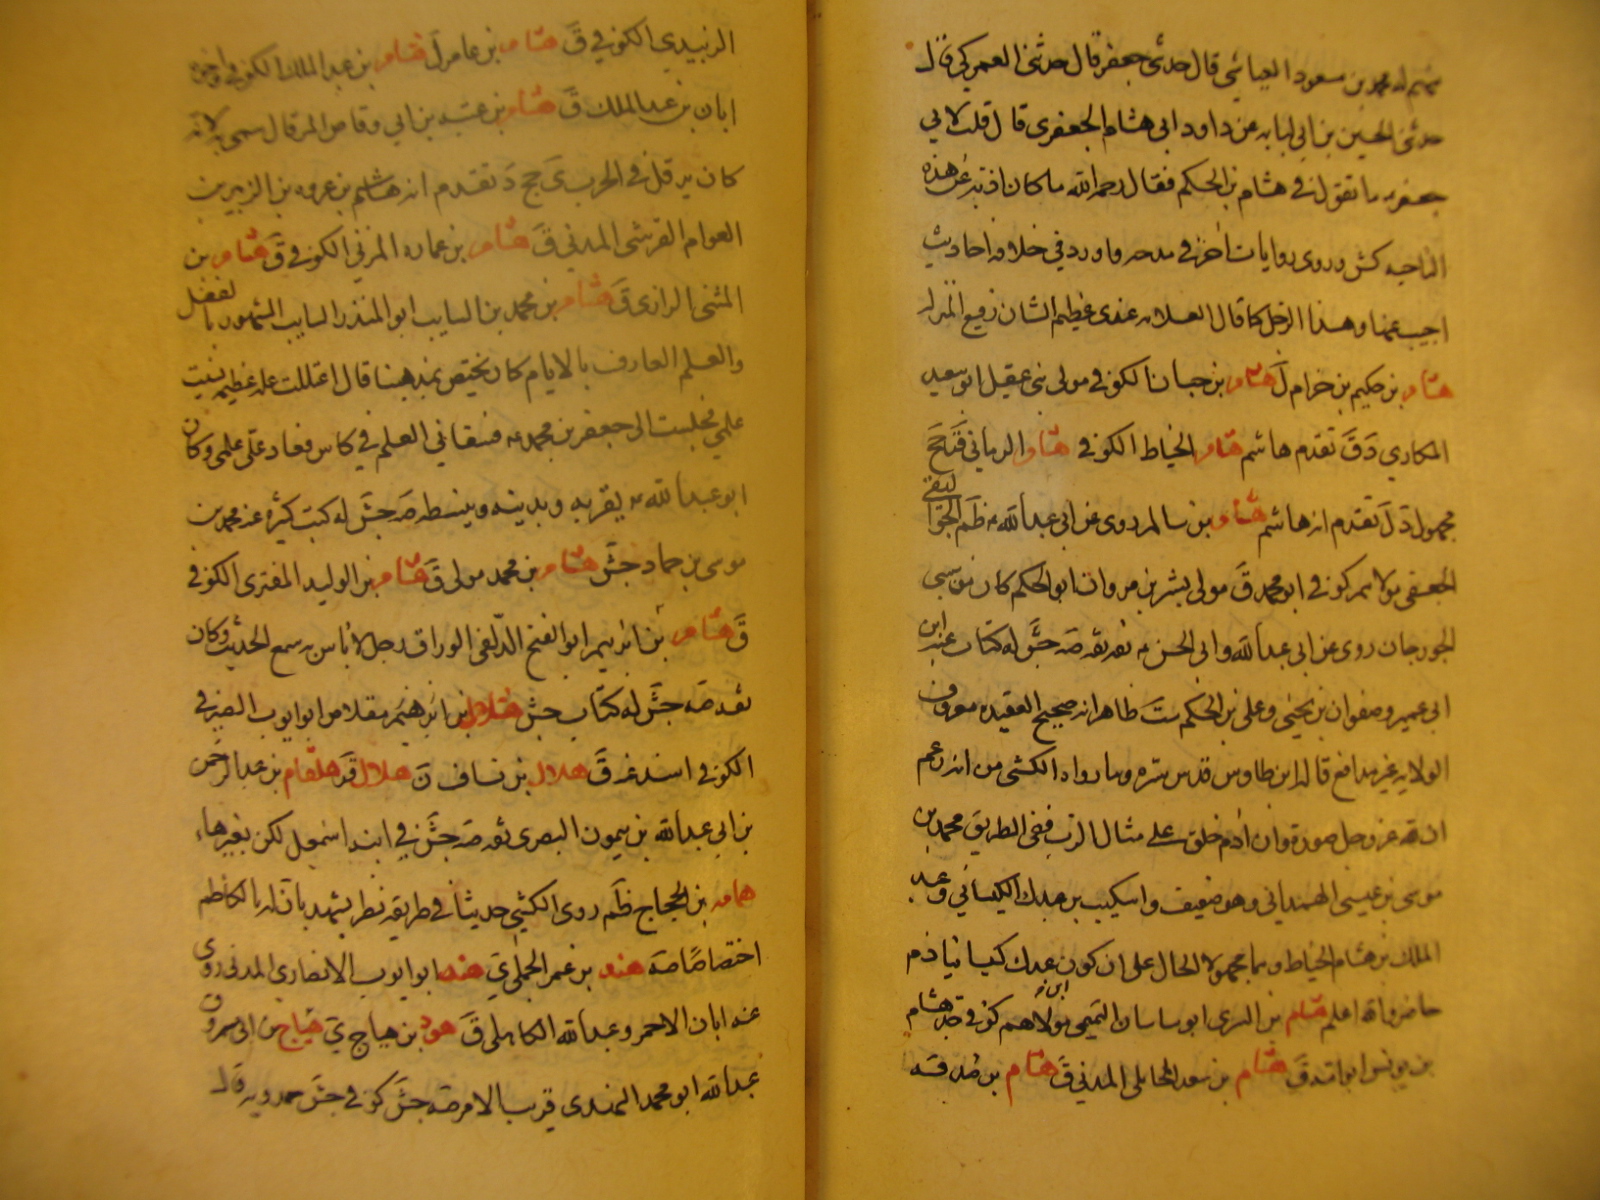 محمد بن مسعود العياشي قال حدثني جعفر قال حدثني العمركي قال
حدثني الحسين بن ابي لبابه عن داود ابي هشام الجعفري قال قلت لابي
جعفر ما تقول في هشام بن الحكم فقال رحمه الله ما كان اذبه عن هذه
الناحيه كش وروى روايات اخر في مدحه واورد في خلافه احاديث
اجيب عنها وهذا الرجل كما قال العلامه عندي عظيم الشان رفيع المنزله
هشام بن حكيم بن حزام ل هشام بن حيان الكوفي مولى بني عقيل ابو سعيد
المكاري د ق تقدم هاشم هشام الخياط الكوفي هشام الرماني
مجهول تقدم انه هاشم هشام بن سالم روى عن ابي عبد الله ظم الجواليقي
الجعفي مولاهم كوفي ابو محمد ق مولى بشر بن مروان ابو الحكم كان من سبي
الجوزجان روى عن ابي عبد الله وابي الحسن ثقه ثقه صه جش له كتاب عنه ابن
ابي عمير وصفوان بن يحيى وعلي بن الحكم ست ظاهرا انه صحيح العقيده معروف
الولايه غير مدافع قاله ابن طاوس قدس سره وما رواه الكشي من انه زعم
ان لله عز وجل صورة وان ادم خلق على مثال الرب ففي الطريق محمد بن
موسى بن عيسى الهمداني وهو ضعيف واسكيب بن عبدك الكيساني وعبد
الملك بن هشام الخياط وهما مجهولا الحال على ان كون عبدك كيسانيا ذم
حاضر والله اعلم هشام بن السري ابو ساسان التميمي مولاهم كوفي هشام
بن يونس ابو ق هشام بن سعد المحاملي المدني ق هشام بن صدقه
الزبيدي الكوفي ق هشام بن عامر ل هشام بن عبد الملك الكوفي واخوه
ابان بن عبد الملك ق هشام بن عتبه بن ابي وقاص المرقال سمي به لانه
كان يرقل في الحرب ي جخ د تقدم انه هاشم بن عروه بن الزبير بن
العوام القرشي المدني ق هشام بن عماره المزني الكوفي ق هشام بن
المثنى الرازي ق هشام بن محمد بن السايب ابو المنذر السايب المشهور بالفضل
والعلم العارف بالايام كان يختص بمذهبنا قال اعتللت علة عظيمه نسيت
علمي فجلست الى جعفر بن محمد فسقاني العلم في كاس فعاد علي علمي وكان
ابو عبد الله يقربه ويدنيه ويبسطه صه جش له كتب كثيره عنه محمد بن
موسى بن حماد جش هشام بن محمد مولى ق هشام بن الوليد المقري الكوفي
ق هشام بن ابراهيم ابو الفتح الدلفي الوراق رجل لا باس به سمع الحديث وكان
ثقه صه جش له كتاب جش هلال بن ابراهيم مقلاص ابو ايوب الصيرفي
الكوفي اسند عنه ق هلال بن نساف ن هلال هلقام بن عبد الرحمن
بن ابي عبد الله بن ميمون البصري ثقه صه جش في ابنه اسمعيل لكن بغير هاء
همام بن الحجاج ظم روى الكشي حديثا في طريقه نظر يشهد بان له بالكاظم
اختصاصا صه هند بن عمر الجملي ي هند ابو ايوب الانصاري المدني روى
عنه ابان الاحمر وعبد الله الكاهلي ق هود بن هياج ي هياج بن ابي مسروق
عبد الله ابو محمد النهدي قريب الامر صه جش كوفي جش حمدويه قال